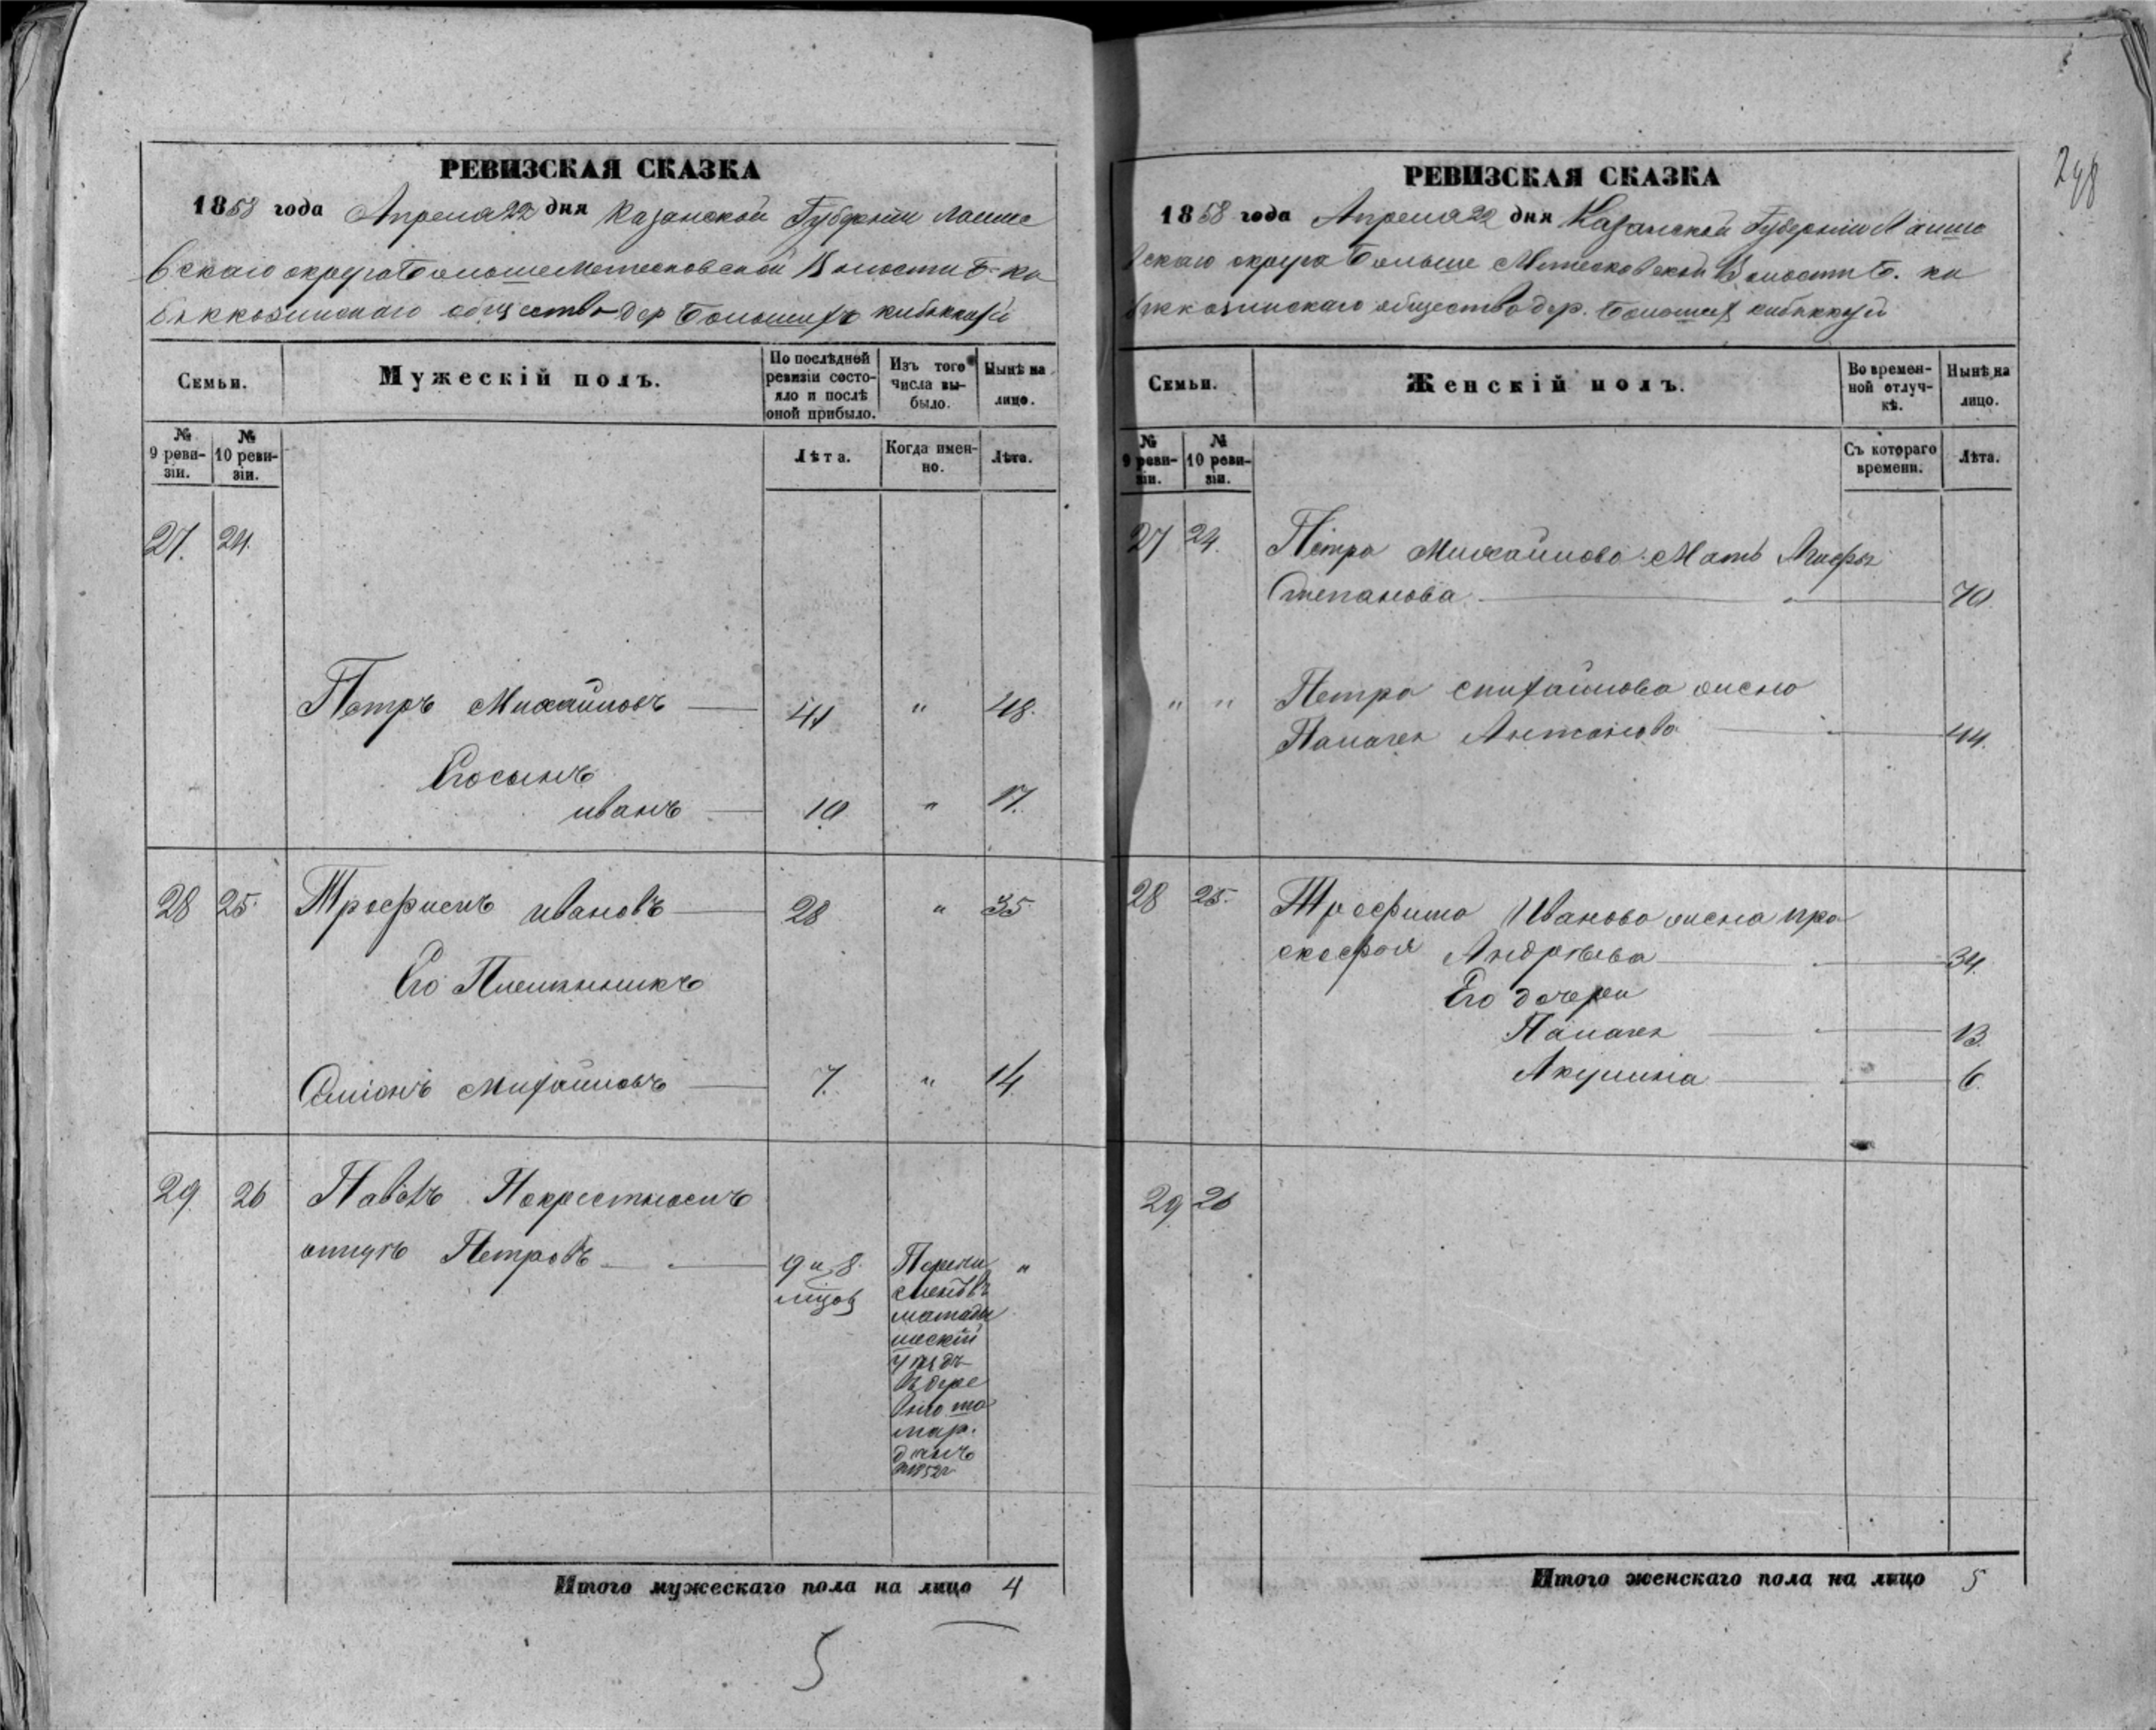 РЕВИЗСКАЯ СКАЗКА
1858 года Апреля 22 дня Казанской Губернии Лаише
вскаго округа Больше Метесковской Волости Б. Ки
бяккозинскаго общества дер Большихъ кибяккозей
Семьи.
Мужескій полъ.
По послѣдней ревизіи состояло и послѣ оной прибыло.
Изъ того числа выбыло.
Нынѣ на лицо.
№ 9 ревизіи.
№ 10 ревизіи.
Лѣта.
Когда именно.
Лѣта.
27. 24.
Петръ Михайловъ 41 " 48.
Его сынъ
иванъ 10 " 17.
28 25. Трофимъ ивановъ 28 " 35.
Его Племянникъ
Семіонъ Михайловъ 7. " 14.
29. 26 Павелъ Покрестному
Петровъ 9 и 8. Перечи "
сленъ въ
мамады
шский
уѣздъ
въ дере
вню
данъ
1852г
Итого мужескаго пола на лицо 4
5
248
РЕВИЗСКАЯ СКАЗКА
1858 года Апреля 22 дня Казанской Губерніи Лаише
вскаго округа Больше Метесковской Волости Б. ки
бяккозинскаго общества дер. Большихъ кибяккозей
Семьи.
Женскій полъ.
Во временной отлучкѣ.
Нынѣ на лицо.
№ 9 ревизіи.
№ 10 ревизіи.
Съ котораго времени.
Лѣта.
27 24. Петра Михайлова Мать
Степанова 70.
" " Петра Михайлова жена
Палагея Антонова 44.
28 25. Трофима Иванова жена пра
скофья Андрѣева 34.
Его дочери
Палагея 13.
Акулина 6.
29. 26
Итого женскаго пола на лицо 5